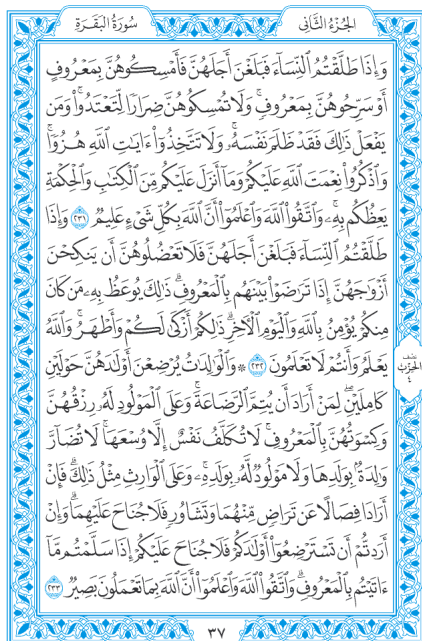 الجُزءُ الثَّانِي
سُورَةُ البَقَرَةِ
وَإِذَا طَلَّقْتُمُ ٱلنِّسَآءَ فَبَلَغْنَ أَجَلَهُنَّ فَأَمْسِكُوهُنَّ بِمَعْرُوفٍ
أَوْ سَرِّحُوهُنَّ بِمَعْرُوفٍۚ وَلَا تُمْسِكُوهُنَّ ضِرَارًا لِّتَعْتَدُوا۟ۚ وَمَن
يَفْعَلْ ذَٰلِكَ فَقَدْ ظَلَمَ نَفْسَهُۥۚ وَلَا تَتَّخِذُوٓا۟ ءَايَٰتِ ٱللَّهِ هُزُوًاۚ
وَٱذْكُرُوا۟ نِعْمَتَ ٱللَّهِ عَلَيْكُمْ وَمَآ أَنزَلَ عَلَيْكُم مِّنَ ٱلْكِتَٰبِ وَٱلْحِكْمَةِ
يَعِظُكُم بِهِۦۚ وَٱتَّقُوا۟ ٱللَّهَ وَٱعْلَمُوٓا۟ أَنَّ ٱللَّهَ بِكُلِّ شَىْءٍ عَلِيمٌ ٢٣١ وَإِذَا
طَلَّقْتُمُ ٱلنِّسَآءَ فَبَلَغْنَ أَجَلَهُنَّ فَلَا تَعْضُلُوهُنَّ أَن يَنكِحْنَ
أَزْوَٰجَهُنَّ إِذَا تَرَٰضَوْا۟ بَيْنَهُم بِٱلْمَعْرُوفِۗ ذَٰلِكَ يُوعَظُ بِهِۦ مَن كَانَ
مِنكُمْ يُؤْمِنُ بِٱللَّهِ وَٱلْيَوْمِ ٱلْأَخِرِۗ ذَٰلِكُمْ أَزْكَىٰ لَكُمْ وَأَطْهَرُۚ وَٱللَّهُ
يَعْلَمُ وَأَنتُمْ لَا تَعْلَمُونَ ٢٣٢ ۞ وَٱلْوَٰلِدَٰتُ يُرْضِعْنَ أَوْلَٰدَهُنَّ حَوْلَيْنِ
نصف
الحزب
٤
كَامِلَيْنِۖ لِمَنْ أَرَادَ أَن يُتِمَّ ٱلرَّضَاعَةَۚ وَعَلَى ٱلْمَوْلُودِ لَهُۥ رِزْقُهُنَّ
وَكِسْوَتُهُنَّ بِٱلْمَعْرُوفِۚ لَا تُكَلَّفُ نَفْسٌ إِلَّا وُسْعَهَاۚ لَا تُضَآرَّ
وَٰلِدَةٌۢ بِوَلَدِهَا وَلَا مَوْلُودٌ لَّهُۥ بِوَلَدِهِۦۚ وَعَلَى ٱلْوَارِثِ مِثْلُ ذَٰلِكَۗ فَإِنْ
أَرَادَا فِصَالًا عَن تَرَاضٍ مِّنْهُمَا وَتَشَاوُرٍ فَلَا جُنَاحَ عَلَيْهِمَاۗ وَإِنْ
أَرَدتُّمْ أَن تَسْتَرْضِعُوٓا۟ أَوْلَٰدَكُمْ فَلَا جُنَاحَ عَلَيْكُمْ إِذَا سَلَّمْتُم مَّآ
ءَاتَيْتُم بِٱلْمَعْرُوفِۗ وَٱتَّقُوا۟ ٱللَّهَ وَٱعْلَمُوٓا۟ أَنَّ ٱللَّهَ بِمَا تَعْمَلُونَ بَصِيرٌ ٢٣٣
٣٧